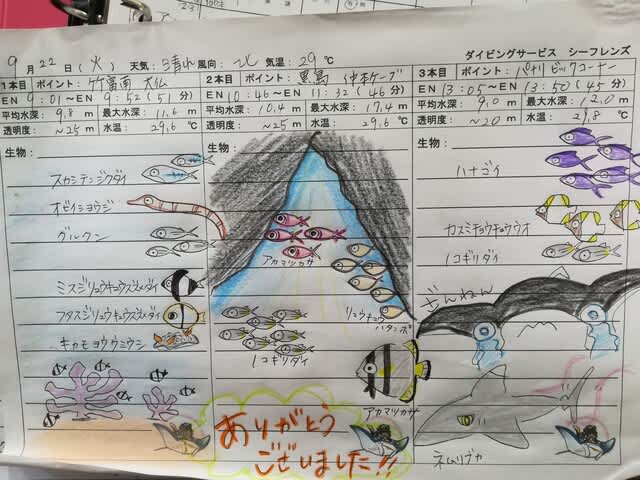 ダイビングサービス　シーフレンズ
9月22日(火) 天気:晴れ 風向:北 気温:29℃
1本目 ポイント:竹富南 大仏
EN 9:01~EN 9:52(51分)
平均水深:9.8m 最大水深:11.6m
透明度:~25m 水温:29.6℃
生物:
スカシテンジクダイ
オビイシヨウジ
グルクン
ミスジリュウキュウスズメダイ
フタスジリュウキュウスズメダイ
キカモヨウウミウシ
2本目 ポイント:黒島 仲本ケーブ
EN 10:46~EN 11:32(46分)
平均水深:10.4m 最大水深:17.4m
透明度:~25m 水温:29.6℃
生物:
アカマツカサ
リュウキュウ
ハタンポ
ノコギリダイ
アカマツカサ
ありがとう
ございました!!
3本目 ポイント:パナリ ビックコーナー
EN 13:05~EN 13:50(45分)
平均水深:9.0m 最大水深:12.0m
透明度:~20m 水温:29.8℃
生物:
ハナゴイ
カスミチョウチョウウオ
ノコギリダイ
ざんねん
ネムリブカ